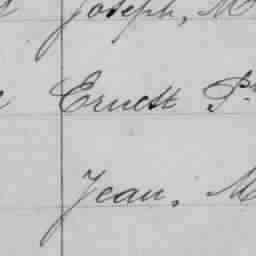 Joseph, M
Ernest P
Jean, M